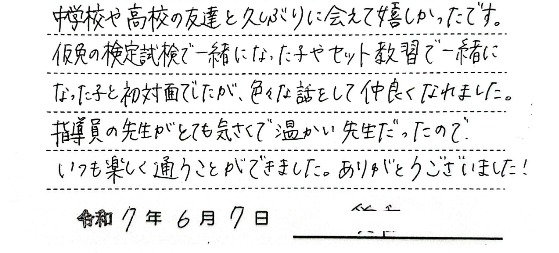 中学校や高校の友達と久しぶりに会えて嬉しかったです。
仮免の検定試検で一緒になった子やセット教習で一緒に
なった子と初対面でしたが、色々な話をして仲良くなれました。
指導員の先生がとても気さくで温かい先生だったので
いつも楽しく通うことができました。ありがとうございました!
令和 7 年 6 月 7 日